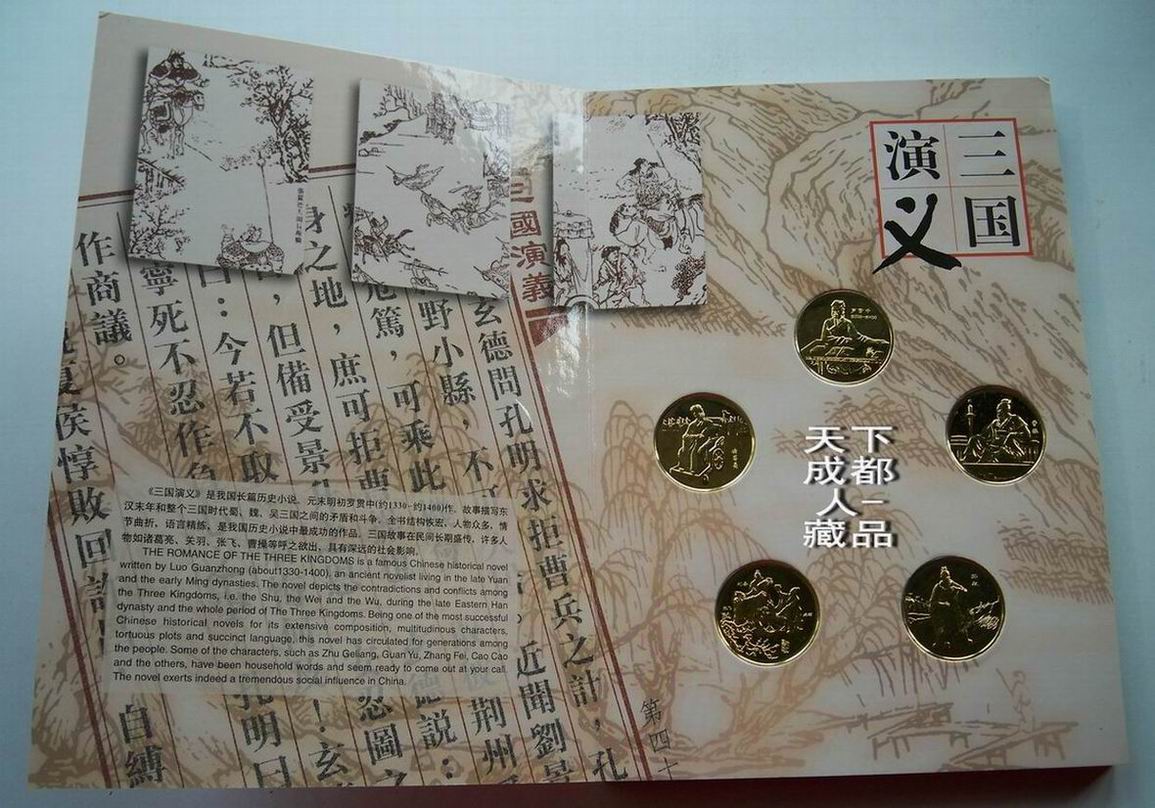 三国
演义
三國演義
作商議。
寧死不忍作負
曰：今若不取
身之地，
，但備受景
庶可拒曹
危篤，可乘此
野小縣，不
玄德問孔明求拒曹兵之計，孔
夏侯惇敗回許
自縛
孔明曰
！玄
忍圖之
德説：
荆州
近聞劉景
第四十
《三国演义》是我国长篇历史小说。元末明初罗贯中(约1330-约1400)作。故事描写东
汉末年和整个三国时代蜀、魏、吴三国之间的矛盾和斗争。全书结构恢宏，人物众多，情
节曲折，语言精练，是我国历史小说中最成功的作品。三国故事在民间长期盛传，许多人
物如诸葛亮、关羽、张飞、曹操等呼之欲出，具有深远的社会影响。
THE ROMANCE OF THE THREE KINGDOMS is a famous Chinese historical novel
written by Luo Guanzhong (about1330-1400), an ancient novelist living in the late Yuan
and the early Ming dynasties. The novel depicts the contradictions and conflicts among
the Three Kingdoms, i.e. the Shu, the Wei and the Wu, during the late Eastern Han
dynasty and the whole period of The Three Kingdoms. Being one of the most successful
Chinese historical novels for its extensive composition, multitudinous characters,
tortuous plots and succinct language, this novel has circulated for generations among
the people. Some of the characters, such as Zhu Geliang, Guan Yu, Zhang Fei, Cao Cao
and the others, have been household words and seem ready to come out at your call.
The novel exerts indeed a tremendous social influence in China.
天下
成都
人–
藏品